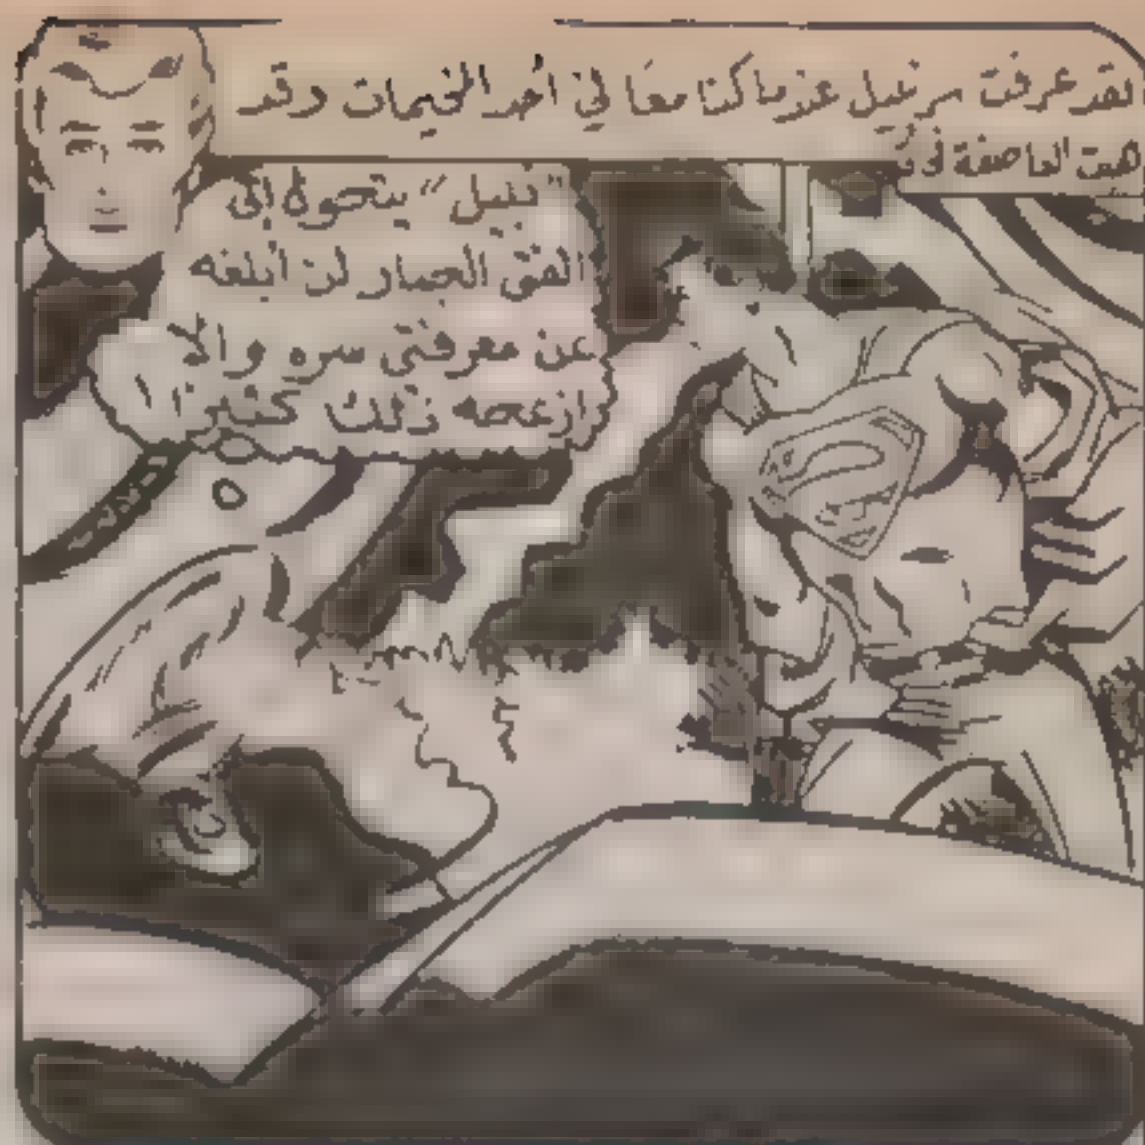 لقد عرفت سر نبيل عندما كنا معًا في أحد المخيمات وقد
هبت العاصفة فوق
"نبيل" يتحول إلى
الفتى الجبار لن أبلغه
عن معرفتي سره وإلا
ازعجه ذلك كثيرًا!